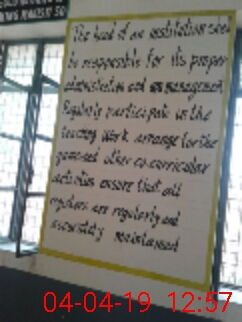 The head of an institution shall
be responsible for its proper
administration and management.
Regularly participate in the
teaching work arrange for the
games and other co.curricular
activities ensure that all
registers are regularly and
accurately maintained
04-04-19 12:57